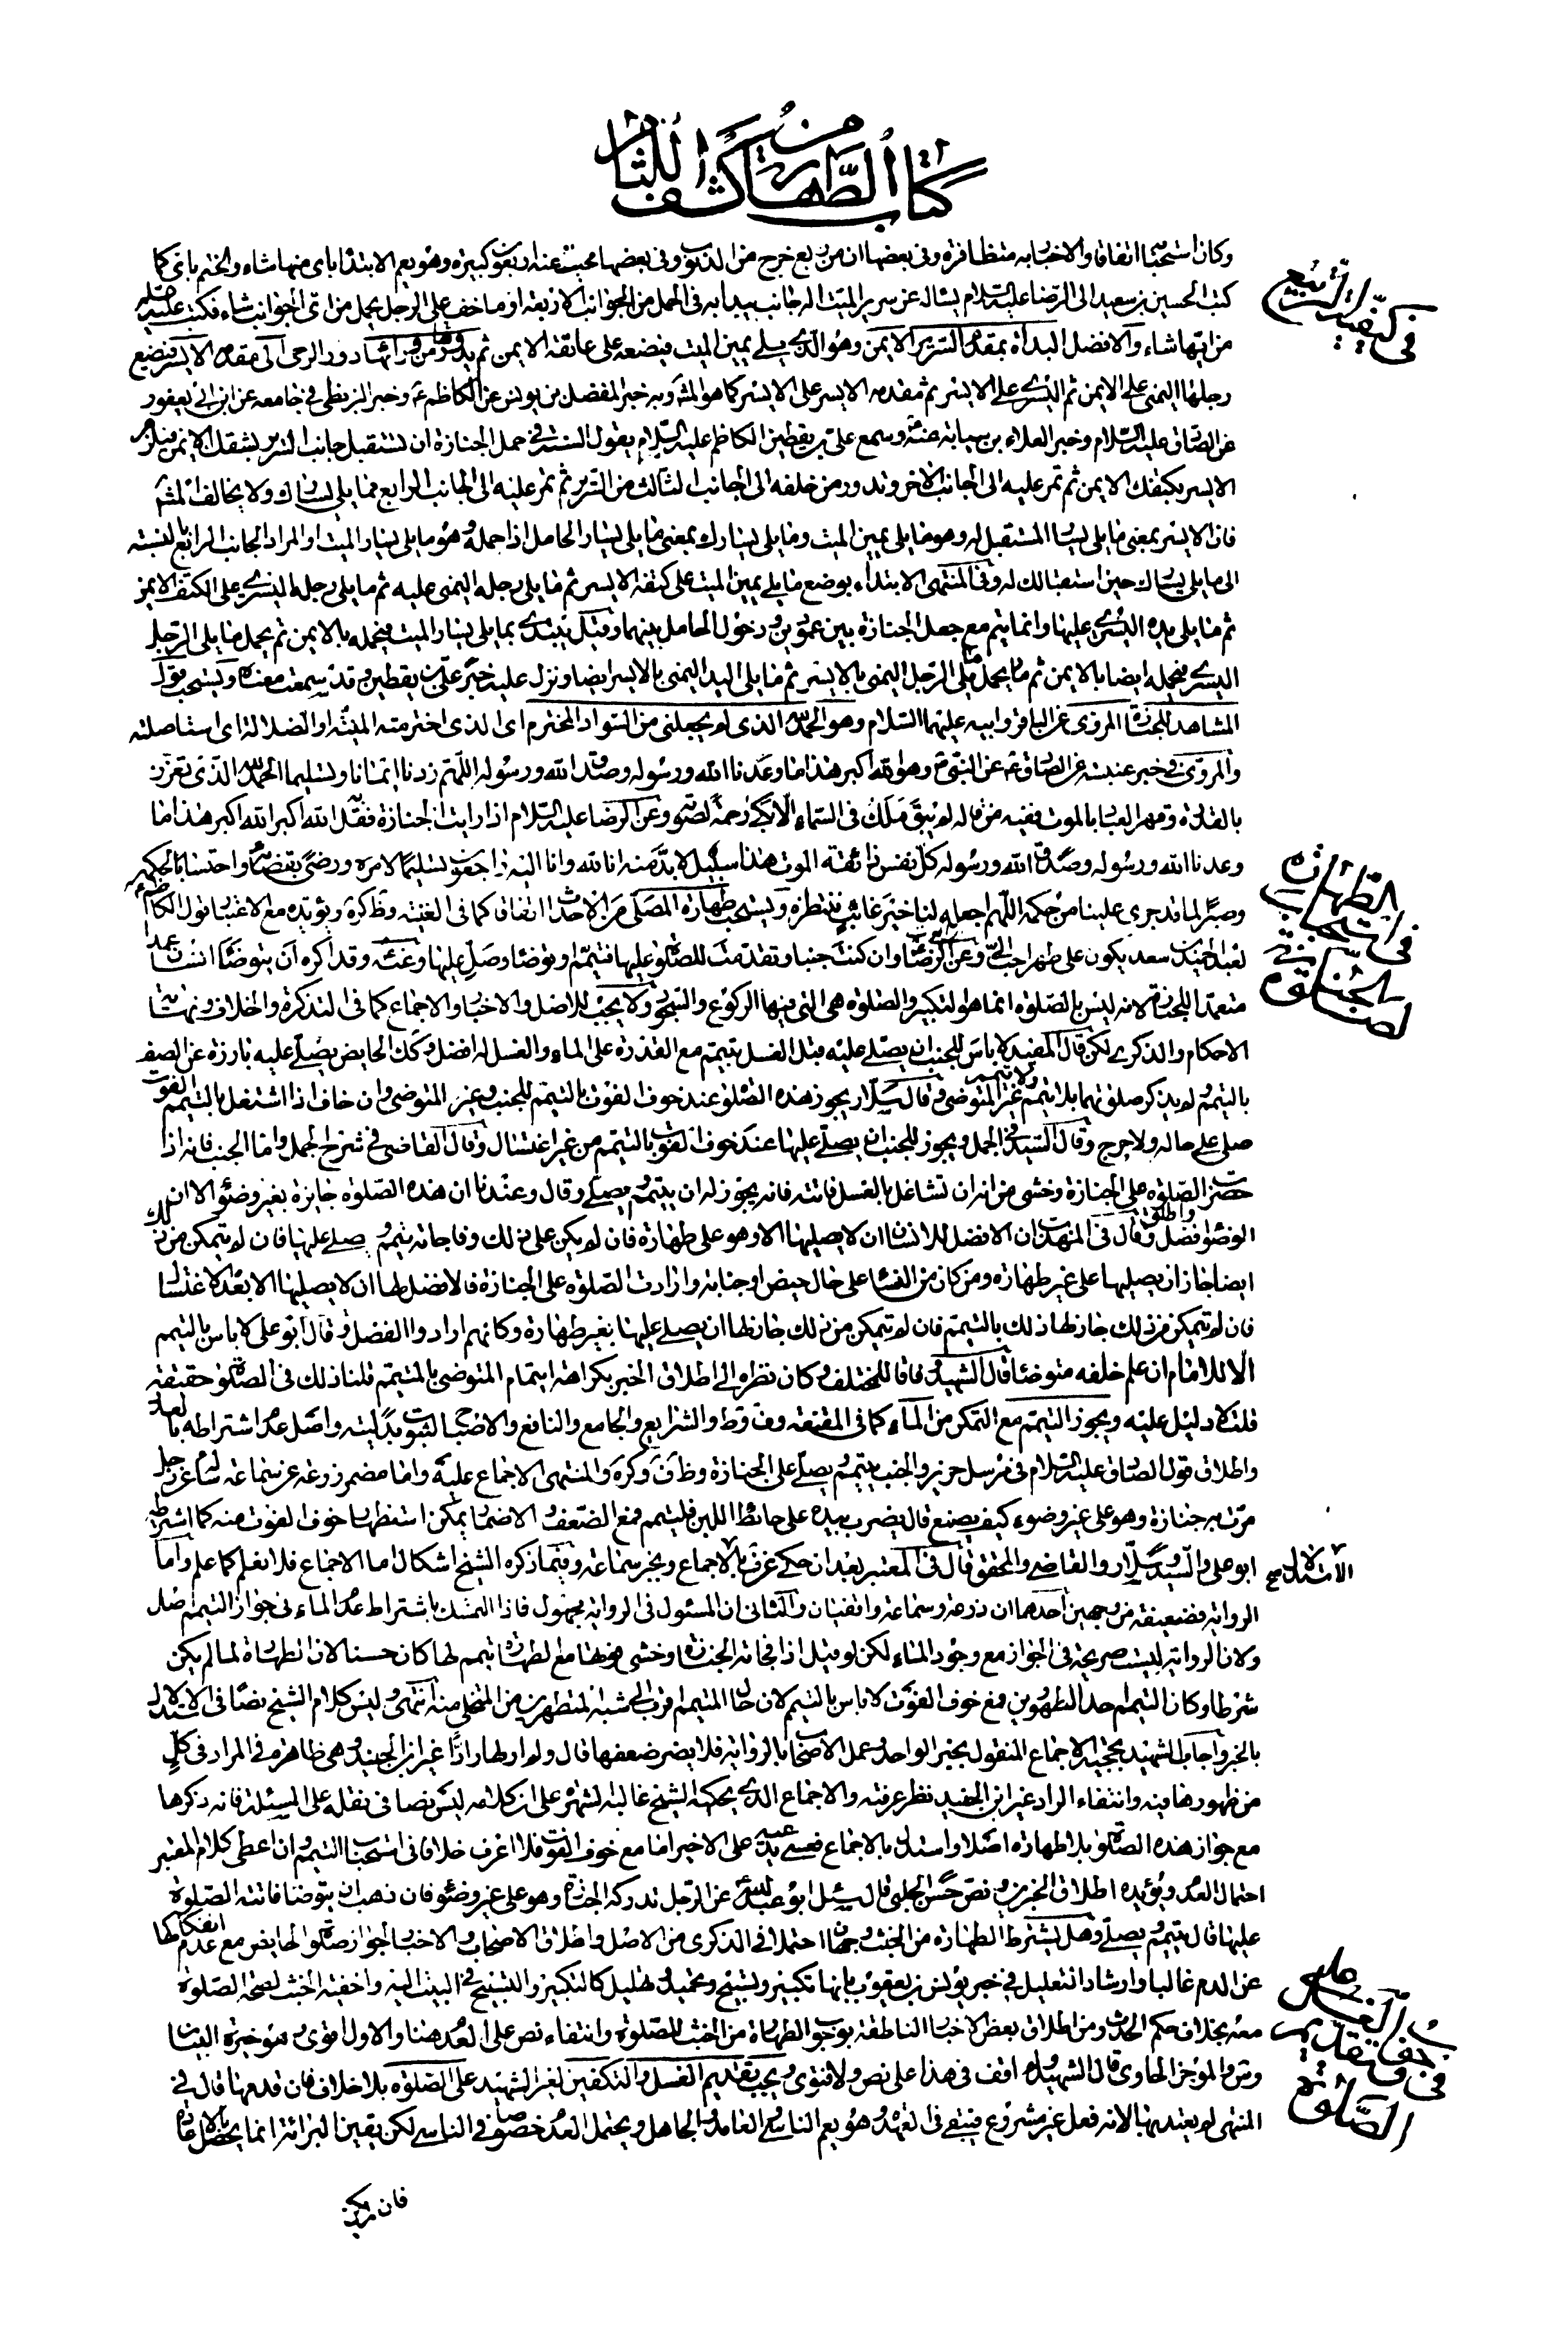 كتاب الطهارة من كشف اللثام
وكان استحبابا اتفاقا والاخبار به متظافرة وفي بعضها ان من ربع خرج من الذنوب وفي بعضها محيت عنه اربعون كبيرة وهو يعم الابتداء باى منها شاء والختم باى كما
كتب الحسين بن سعيد الى الرضا عليه السلام يساله عن سرير الميت اله جانب يبدا به في الحمل من الجوانب الاربعة او ما خف على الرجل يحمل من اى الجوانب شاء فكتب عليه
في كيفية التربيع
من ايها شاء والافضل البداة بمقدم السرير الايمن وهو الذى يلي يمين الميت فيضعه على عاتقه الايمن ثم يدور من ورائها دور الرحى الى مقدمه الايسر فيضع
رجلها اليمنى على الايمن ثم اليسرى على الايسر ثم مقدمه الايسر على الايسر كما هو المش وبه خبر المفضل بن يونس عن الكاظم ع وخبر البزنطي في جامعه عن ابن ابي يعفور
عن الصادق عليه السلام وخبر العلاء بن سيابة عنه وسمع علي بن يقطين الكاظم عليه السلام يقول السنة في حمل الجنازة ان تستقبل جانب السرير بشقك الايمن فتلزم
الايسر بكتفك الايمن ثم تمر عليه الى الجانب الاخر وتدور من خلفه الى الجانب الثالث من السرير ثم تمر عليه الى الجانب الرابع مما يلي يسارك ولا يخالف المش
فان الايسر بمعنى ما يلي يسار المستقبل له وهو ما يلي يمين الميت وما يلي يسارك بمعنى ما يلي يسار الحامل اذا حمله وهو ما يلي يسار الميت او المراد الجانب الرابع بالنسبة
الى ما يلي يسارك حين استقبالك له وفي المنتهى الابتداء بوضع ما يلي يمين الميت على كتفه الايسر ثم ما يلي رجله اليمنى عليه ثم ما يلي رجله اليسرى على الكتف الايمن
ثم ما يلي يده اليسرى عليها وانما يتم مع جعل الجنازة بين عمودين ودخول الحامل بينهما وقيل يبتدي بما يلي يسار الميت فيحمله بالايمن ثم يحمل ما يلي الرجل
اليسرى فيحمله ايضا بالايمن ثم يحمل ما يلي الرجل اليمنى بالايسر ثم ما يلي اليد اليمنى بالايسر ايضا ونزل عليه خبر علي بن يقطين وقد سمعت معناه ويستحب قول
المشاهد للجنازة المروى عن الباقر وابيه عليهما السلام وهو الحمد لله الذى لم يجعلني من السواد المخترم اى الذى اخترمته المنية او الضلالة اى استاصلته
والمروى في خبر عنبسة عن الصادق ع عن النبي ص وهو الله اكبر هذا ما وعدنا الله ورسوله وصدق الله ورسوله اللهم زدنا ايمانا وتسليما الحمد لله الذى تعزز
بالقدرة وقهر العباد بالموت ففيه من قاله لم يبق ملك في السماء الا بكى رحمة لصوته وعن الرضا عليه السلام اذا رايت الجنازة فقل الله اكبر الله اكبر هذا ما
وعدنا الله ورسوله وصدق الله ورسوله كل نفس ذائقة الموت هذا سبيل لابد منه انا لله وانا اليه راجعون تسليما لامره ورضى بقضائه واحتسابا لحكمه
وصبرا لما قد جرى علينا من حكمه اللهم اجعله لنا خير غائب ننتظره ويستحب طهارة المصلى من الاحداث اتفاقا كما في الغنية وظ كره ويؤيده مع الاعتبار قول الكاظم ع
في استحباب الطهارة لصلوة الجنازة
لعبد الحميد بن سعد يكون على طهر احب الى وعن الرضا وان كنت جنبا وتقدمت للصلوة عليها فتيمم او توضا وصل عليها وعنه وقد اكره ان يتوضا انسان عمدا
متعمدا للجنازة لانه ليس بالصلوة انما هو التكبير والصلوة هي التي فيها الركوع والسجود ولا يجب للاصل والاخبار والاجماع كما في التذكرة والخلاف ونهاية
الاحكام والذكرى لكن قال المفيد لا باس للجنب ان يصلي عليه قبل الغسل بتيمم مع القدرة على الماء والغسل له افضل وكك الحايض يصلى عليه بارزة عن الصف
بالتيمم ولم يذكر صلوتهما بلا تيمم ولا تيمم غير المتوضى وقال سلار يجوز هذه الصلوة عند خوف الفوت بالتيمم للجنب وغير المتوضى وان خاف اذا اشتغل بالتيمم الفوت
صلى على حاله ولا حرج وقال السيد في الجمل ويجوز للجنب ان يصلي عليها عند خوف الفوت بالتيمم من غير اغتسال وقال القاضي في شرح الجمل واما الجنب فانه اذا
حضرت الصلوة على الجنازة وخشى من انه ان تشاغل بالغسل فاتته فانه يجوز له ان يتيمم ويصلي وقال وعندنا ان هذه الصلوة جايزة بغير وضوء الا ان
الوضوء افضل واطلق وقال في المهذب ان الافضل للانسان ان لا يصليها الا وهو على طهارة فان لم يكن على ذلك وفاجاته تيمم وصلى عليها فان لم يتمكن من ذلك
ايضا جاز ان يصليها على غير طهارة ومن كان من النساء على حال حيض او جنابة وارادت الصلوة على الجنازة فالافضل لها ان لا يصليها الا بعد الاغتسال
فان لم يتمكن من ذلك جاز لها ذلك بالتيمم فان لم يتمكن من ذلك جاز لها ان يصلي عليها بغير طهارة وكانهم ارادوا الفضل وقال ابو علي لا باس بالتيمم
الا للامام ان علم خلفه متوضئا قال الشهيد وفاقا للمختلف وكان نظره الى اطلاق الخبر بكراهة ايتمام المتوضى بالمتيمم قلنا ذلك في الصلوة حقيقة
قلت لا دليل عليه ويجوز التيمم مع التمكن من الماء كما في المقنعة وف وط والشرايع والجامع والنافع والاصباح لثبوت بدليته واصل عدم اشتراطه بالعدم
واطلاق قول الصادق عليه السلام في مرسل حريز والجنب يتيمم ويصلي على الجنازة وظ ف وكره والمنتهى الاجماع عليه واما مضمر زرعة عن سماعة ساله عن رجل
مرت به جنازة وهو على غير وضوء كيف يصنع قال يضرب بيديه على حائط اللبن فليتيمم فمع الضعف والاضمار يمكن استظهار خوف الفوت منه كما اشترطه
ابو علي والسيد وسلار والقاضي والمحقق قال في المعتبر بعد ان حكى عن ف الاجماع وبخبر سماعة وفيما ذكره الشيخ اشكال اما الاجماع فلا نعلمه كما علم واما
الاستدلال صح
الرواية فضعيفة من وجهين احدهما ان زرعة وسماعة واقفيان والثاني ان المسئول في الرواية مجهول فاذا التمسك باشتراط عدم الماء في جواز التيمم اصل
ولان الرواية ليست صريحة في الجواز مع وجود الماء لكن لو قيل اذا فجاته الجنازة وخشى فوتها مع الطهارة تيمم لها كان حسنا لان الطهارة لما لم يكن
شرطا وكان التيمم احد الطهورين فمع خوف الفوت لا باس بالتيمم لان حال المتيمم اقرب الى شبه المتطهرين من المتخلى منه انتهى وليس كلام الشيخ نصا في الاستدلال
بالخبر واجاب الشهيد بحجية الاجماع المنقول بخبر الواحد وعمل الاصحاب بالرواية فلا يضر ضعفها قال ولم ار لها رادا غير ابن الجنيد وهي ظاهرة في المراد في كل
من ظهورها فيه وانتفاء الراد غير ابن الجنيد نظر عرفته والاجماع الذى يحكيه الشيخ غالبا لشهرة على ان كلامه ليس نصا في نقله على المسئلة فانه ذكرها
مع جواز هذه الصلوة بلا طهارة اصلا واستدل بالاجماع فعسى يدعيه على الاخير اما مع خوف الفوت فلا اعرف خلافا في استحباب التيمم وان اعطى كلام المعتبر
احتمال العدم ويؤيده اطلاق الخبرين ونص حسن الحلبي قال سئل ابو عبد الله ع عن الرجل تدركه الجنازة وهو على غير وضوء فان ذهب ان يتوضا فاتته الصلوة
عليها قال يتيمم ويصلي وهل يشترط الطهارة من الخبث وجهان احتملا في الذكرى من الاصل واطلاق الاصحاب والاخبار وجواز صلوة الحايض مع عدم انفكاكها
عن الدم غالبا وارشاد التعليل في خبر يونس بن يعقوب بانها تكبير وتسبيح وتحميد وتهليل كالتكبير والتسبيح في البيت اليه واخفية الخبث لصحة الصلوة
معه بخلاف حكم الحدث ومن اطلاق بعض الاخبار الناطقة بوجوب الطهارة من الخبث للصلوة وانتفاء نص على العدم هنا والاول اقوى وهو خيرة البيان
وس والموجز الحاوي قال الشهيد ولم اقف في هذا على نص ولا فتوى ويجب تقديم الغسل والتكفين لغير الشهيد على الصلوة بلا خلاف فان قدمها قال في
في وجوب تقديم الغسل على الصلوة
المنتهى لم يعتد بها لانه فعل غير مشروع فيبقى في العهدة وهو يعم الناسي والعامد والجاهل ويحتمل العدم خصوصا في الناسي لكن يقين البرائة انما يحصل بالاعادة
فان لم يكن